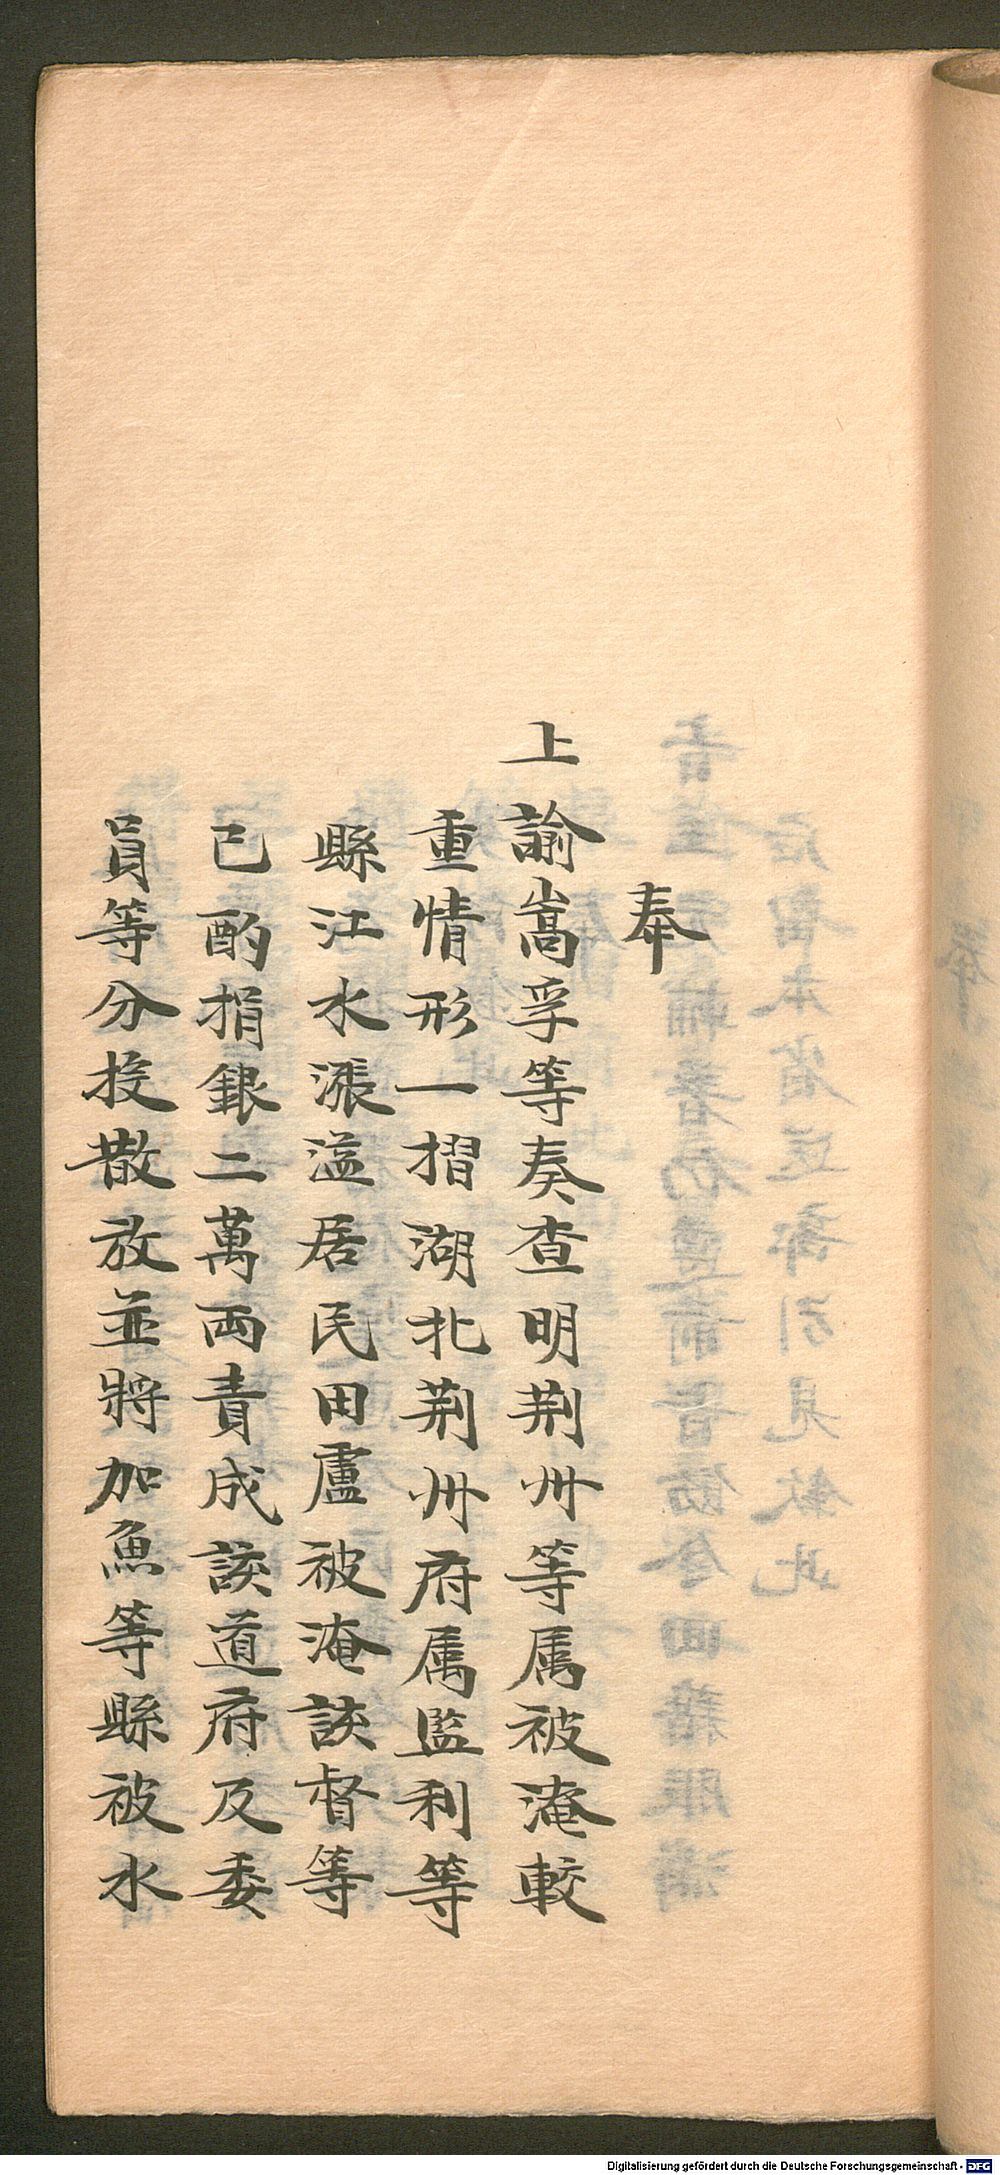 奉
上諭嵩孚等奏查明荆州等属被淹較
重情形一摺湖北荆州府属監利等
縣江水漲溢居民田廬被淹該督等
已酌捐銀二萬両責成該道府及委
員等分投散放並將加魚等縣被水
Digitalisierung gefördert durch die Deutsche Forschungsgemeinschaft - DFG